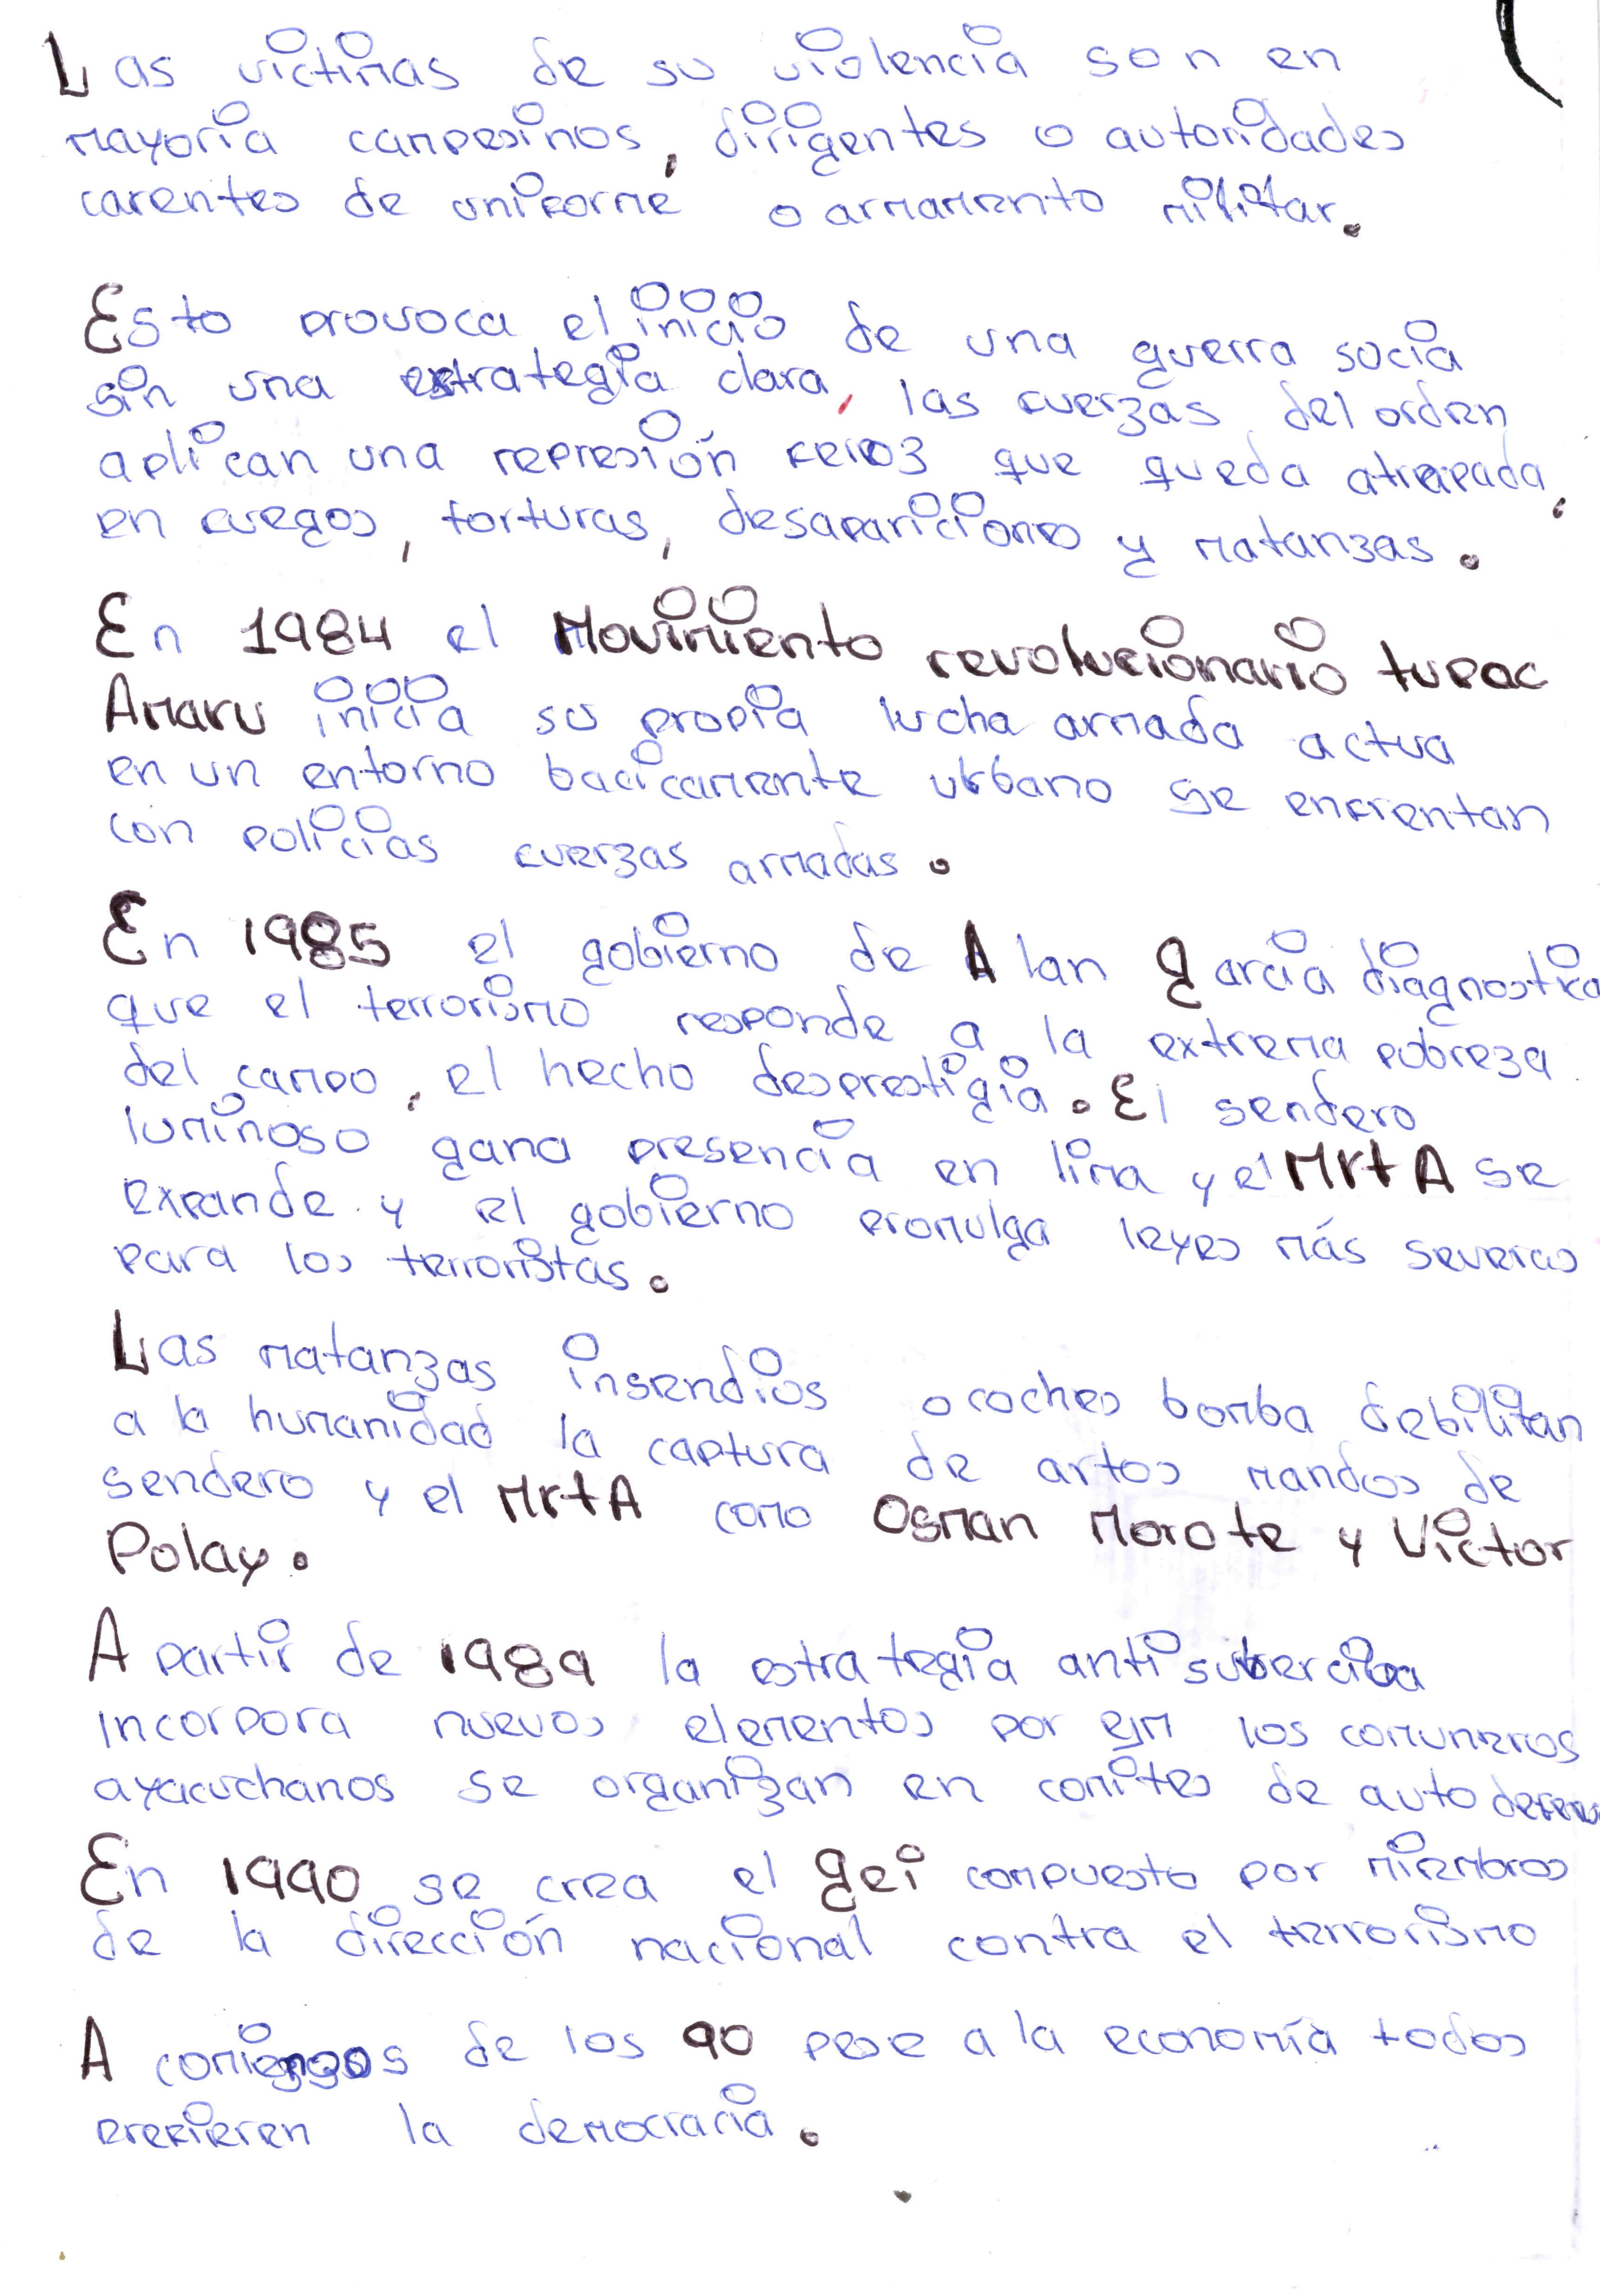 Las victimas de su violencia son en
mayoria campesinos, dirigentes o autoridades
carentes de uniforme o armamento militar.
Esto provoca el inicio de una guerra socia
sin una estrategia clara, las fuerzas del orden
aplican una represión feroz que queda atrapada,
en fuegos, torturas, desapariciones y matanzas.
En 1984 el Movimiento revolucionario tupac
Amaru inicia su propia lucha armada actua
en un entorno bacicamente urbano se enfrentan
con policias fuerzas armadas.
En 1985 el gobierno de Alan garcia diagnostica
que el terrorismo responde a la extrema pobreza
del campo, el hecho desprestigia. El sendero
luminoso gana presencia en lima y el MrtA se
expande y el gobierno promulga leyes más severas
para los terroristas.
Las matanzas insendios o coches bomba debilitan
a la humanidad la captura de artos mandos de
sendero y el MrtA como Osman Morote y Victor
Polay.
A partir de 1989 la estrategia anti suberciba
incorpora nuevos elementos por ejm los comuneros
ayacuchanos se organizan en comites de auto defensa
En 1990 se crea el gei compuesto por miembros
de la dirección nacional contra el terrorismo
A comienzos de los 90 pese a la economía todos
prefieren la democracia.